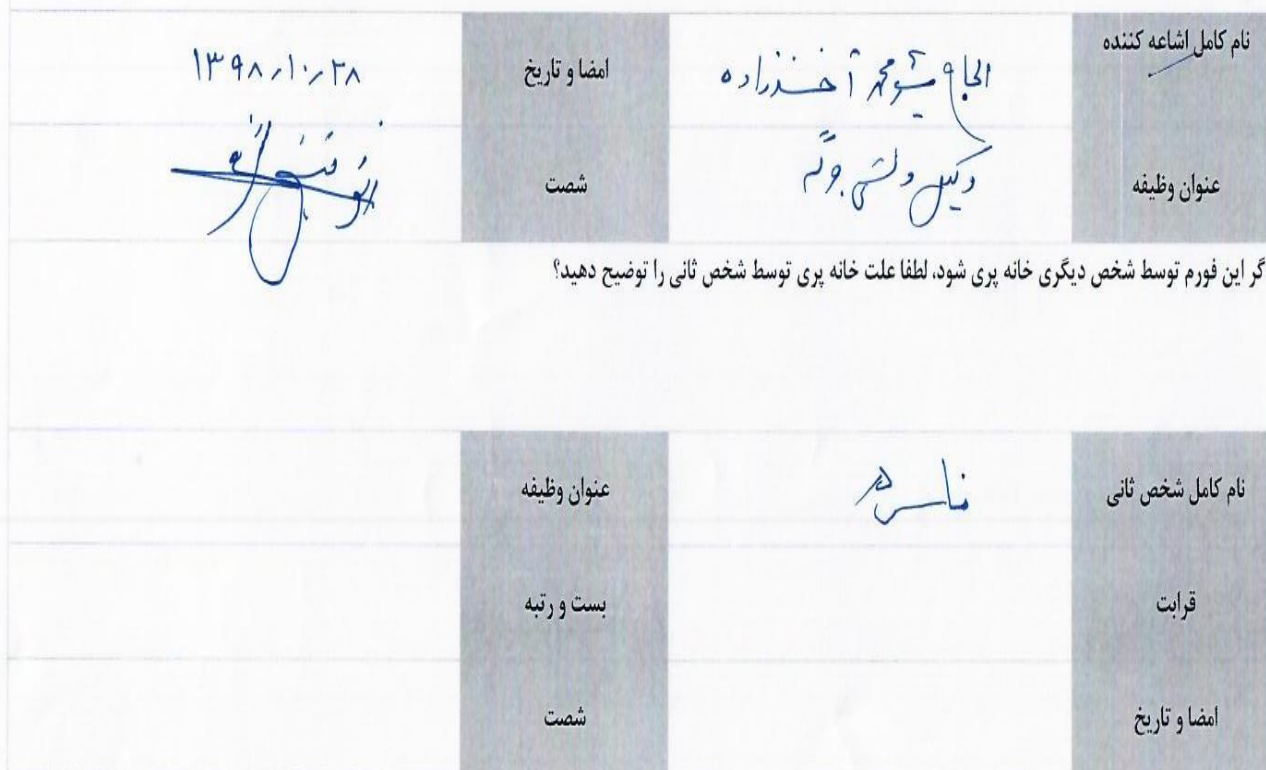 نام کامل اشاعه کننده الحاج شیر محمد آخندزاده امضا و تاریخ ۱۳۹۸/۱۰/۲۸
عنوان وظیفه وکیل ولسی جرگه شصت
گر این فورم توسط شخص دیگری خانه پری شود، لطفا علت خانه پری توسط شخص ثانی را توضیح دهید؟
نام کامل شخص ثانی عنوان وظیفه
قرابت بست و رتبه
امضا و تاریخ شصت